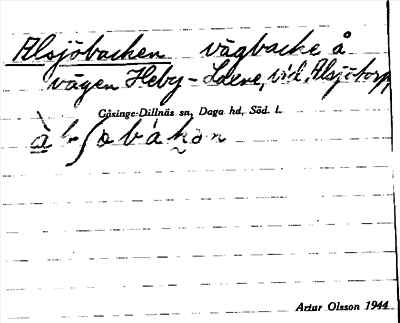 Alsjöbacken vägbacke å
vägen Heby - Laeve, vid Alsjötorp,
Gåsinge-Dillnäs sn, Daga hd, Söd. l.
Artur Olsson 1944